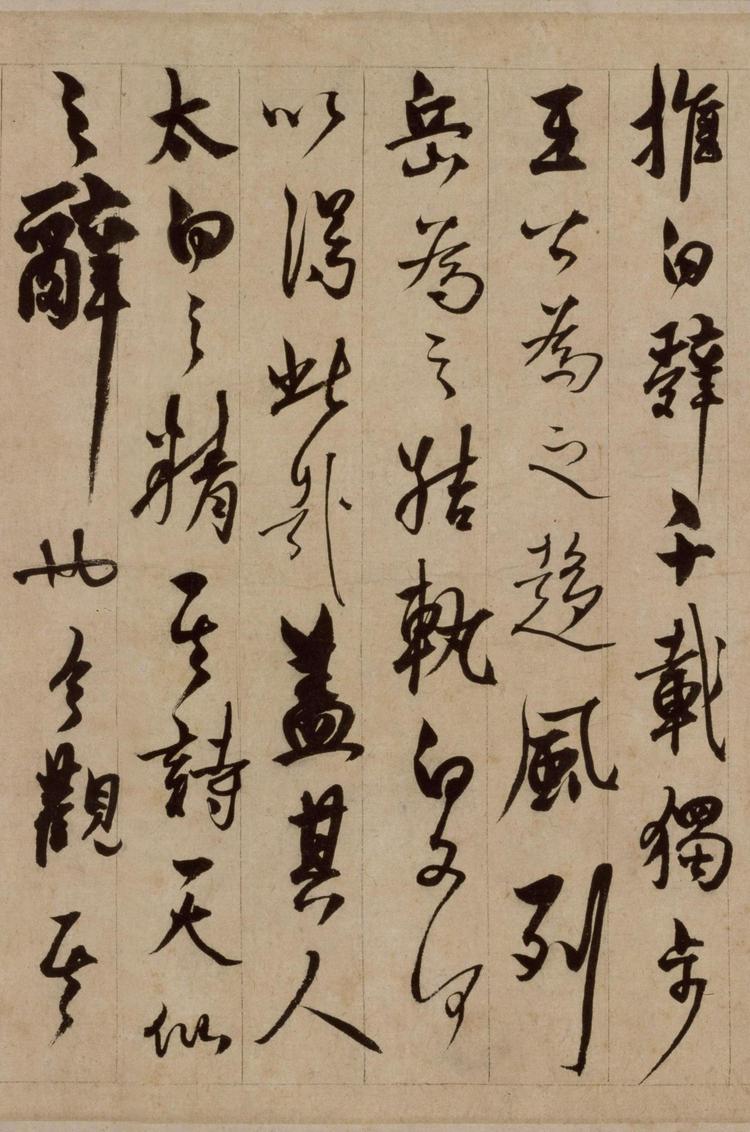 推白辭千載獨步
王公為之趍風列
岳為之結軌白文何
以得此哉蓋其人
太白之精其詩天仙
之辭也今觀其